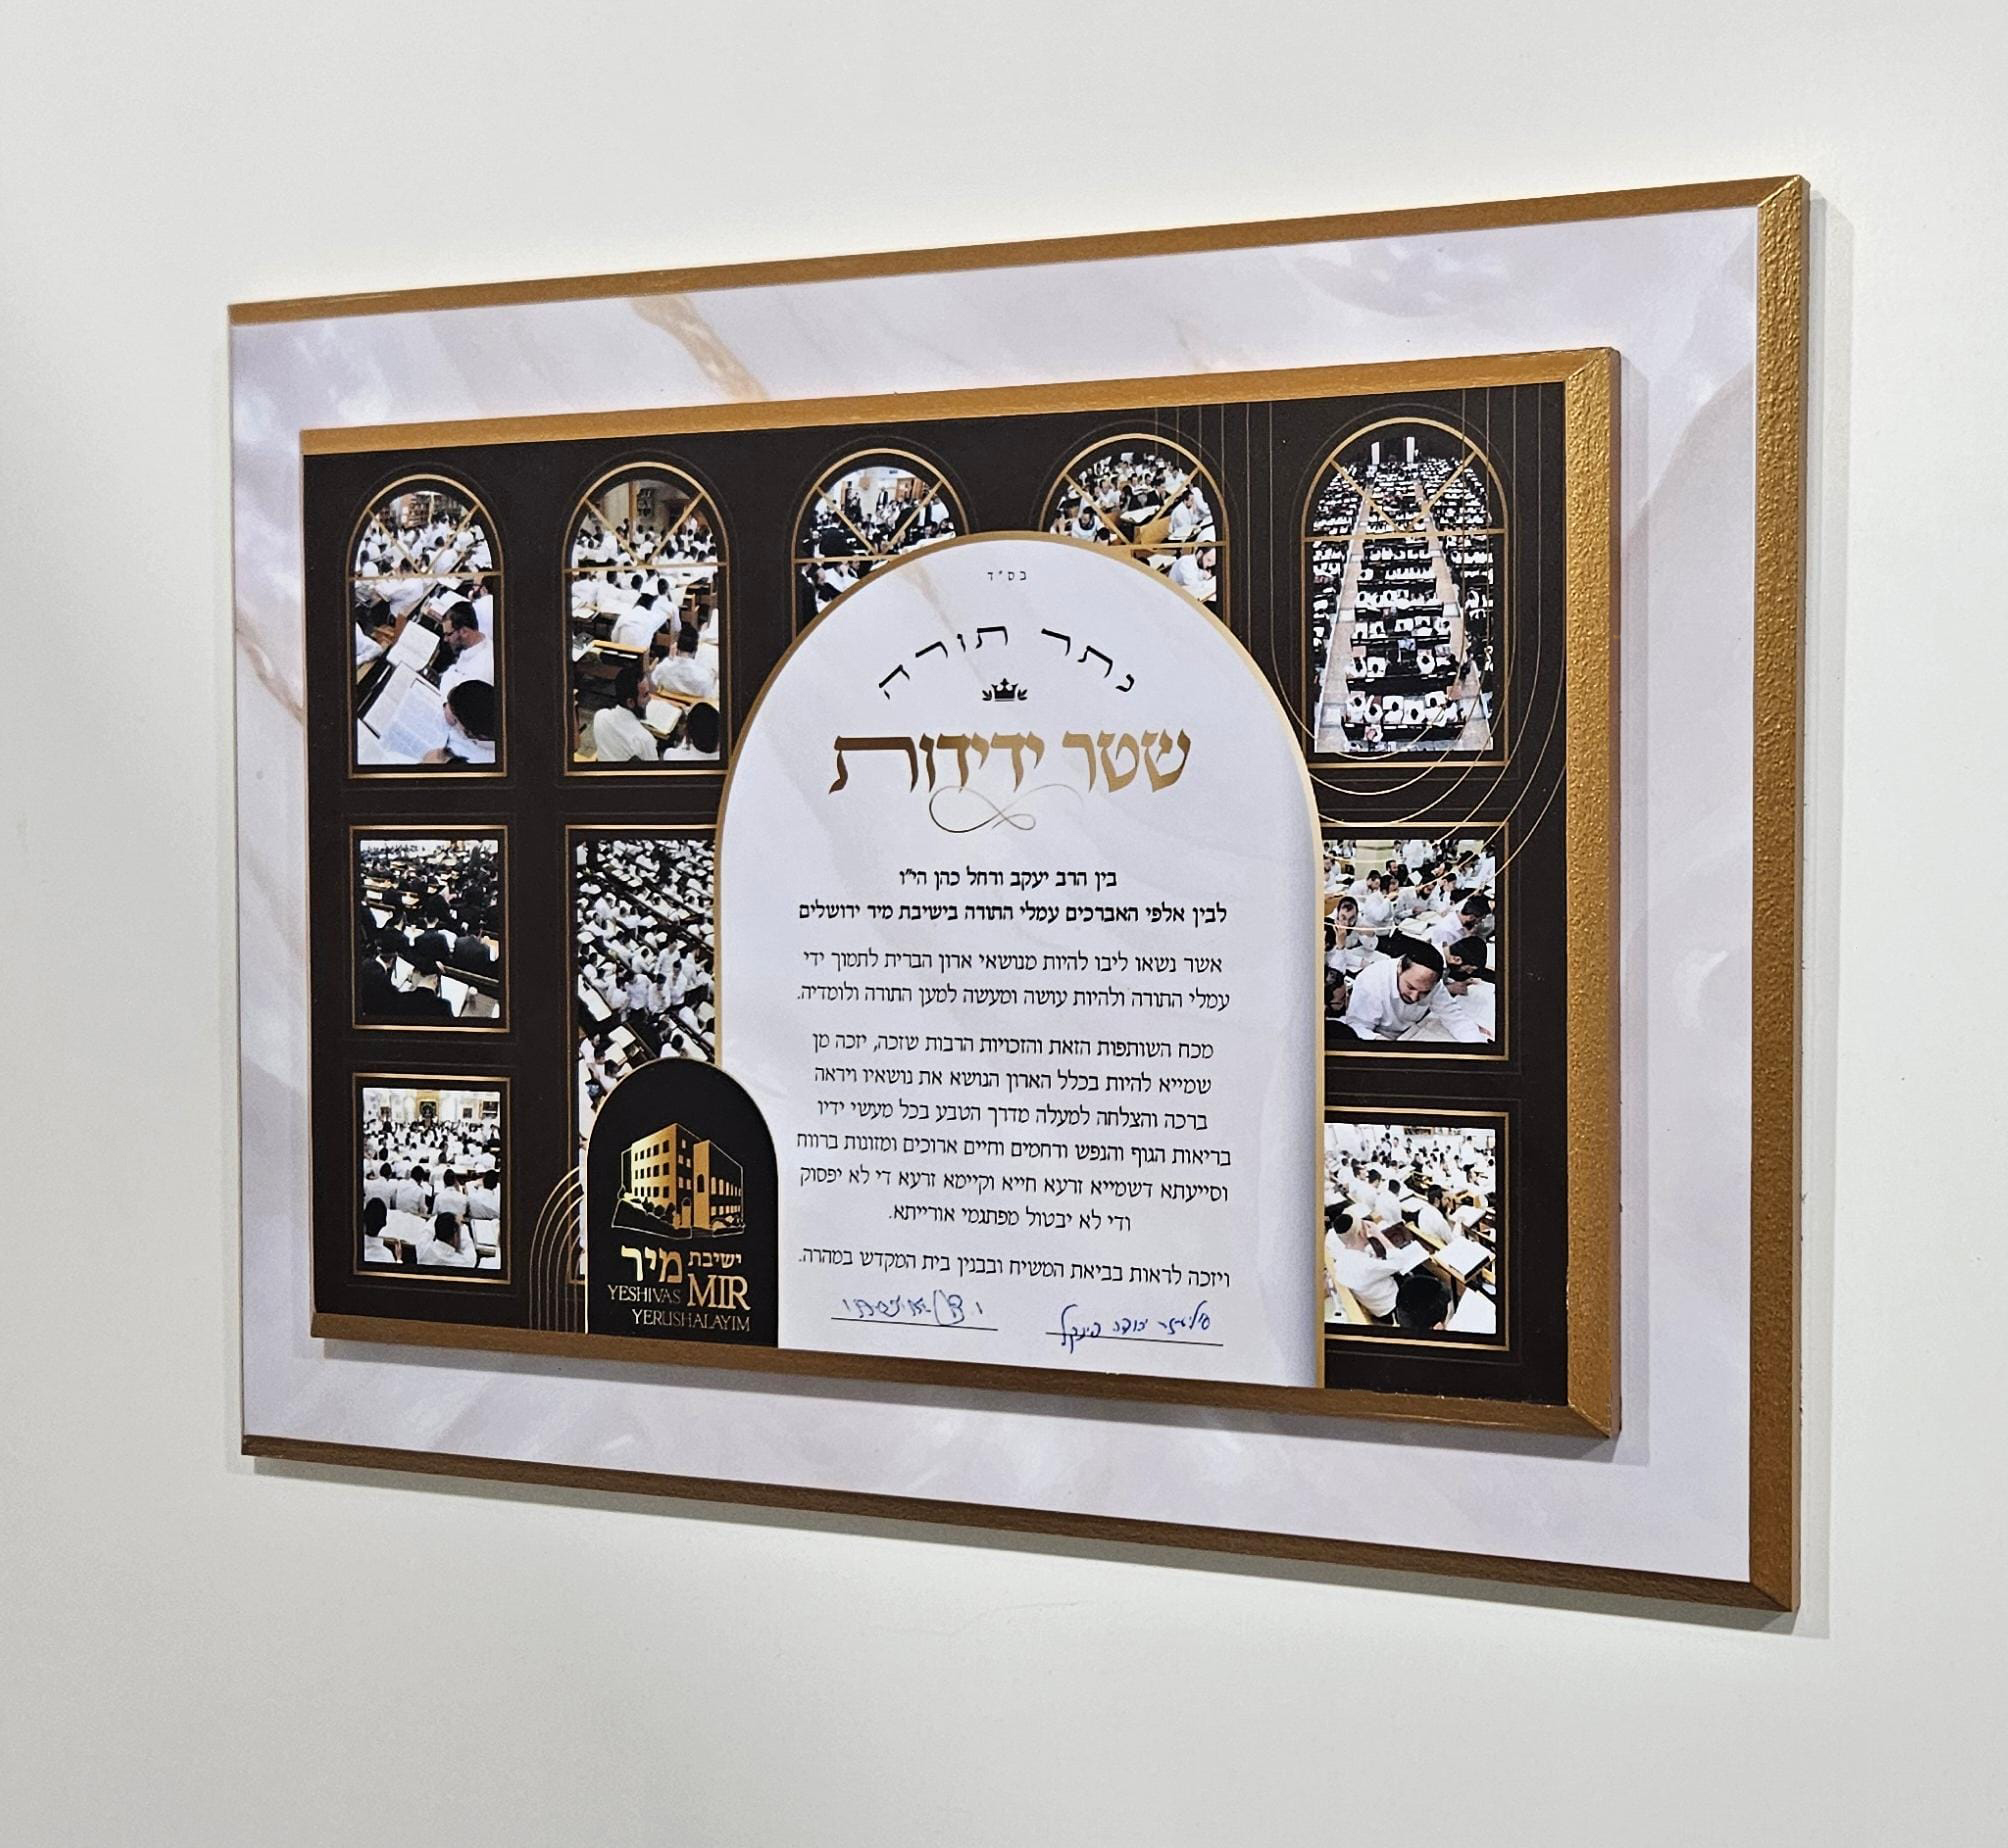 בס"ד
כתר תורה
שטר ידידות
בין הרב יעקב ורחל כהן הי"ו
לבין אלפי האברכים עמלי התורה בישיבת מיר ירושלים
אשר נשאו ליבו להיות מנושאי ארון הברית לתמוך ידי
עמלי התורה ולהיות עושה ומעשה למען התורה ולומדיה.
מכח השותפות הזאת והזכויות הרבות שזכה, יזכה מן
שמייא להיות בכלל הארון הנושא את נושאיו ויראה
ברכה והצלחה למעלה מדרך הטבע בכל מעשי ידיו
בריאות הגוף והנפש ורחמים וחיים ארוכים ומזונות ברווח
וסייעתא דשמייא זרעא חייא וקיימא זרעא די לא יפסוק
ודי לא יבטול מפתגמי אורייתא.
ויזכה לראות בביאת המשיח ובבנין בית המקדש במהרה.
אליעזר יהודה פינקל
ישיבת מיר
YESHIVAS MIR
YERUSHALAYIM